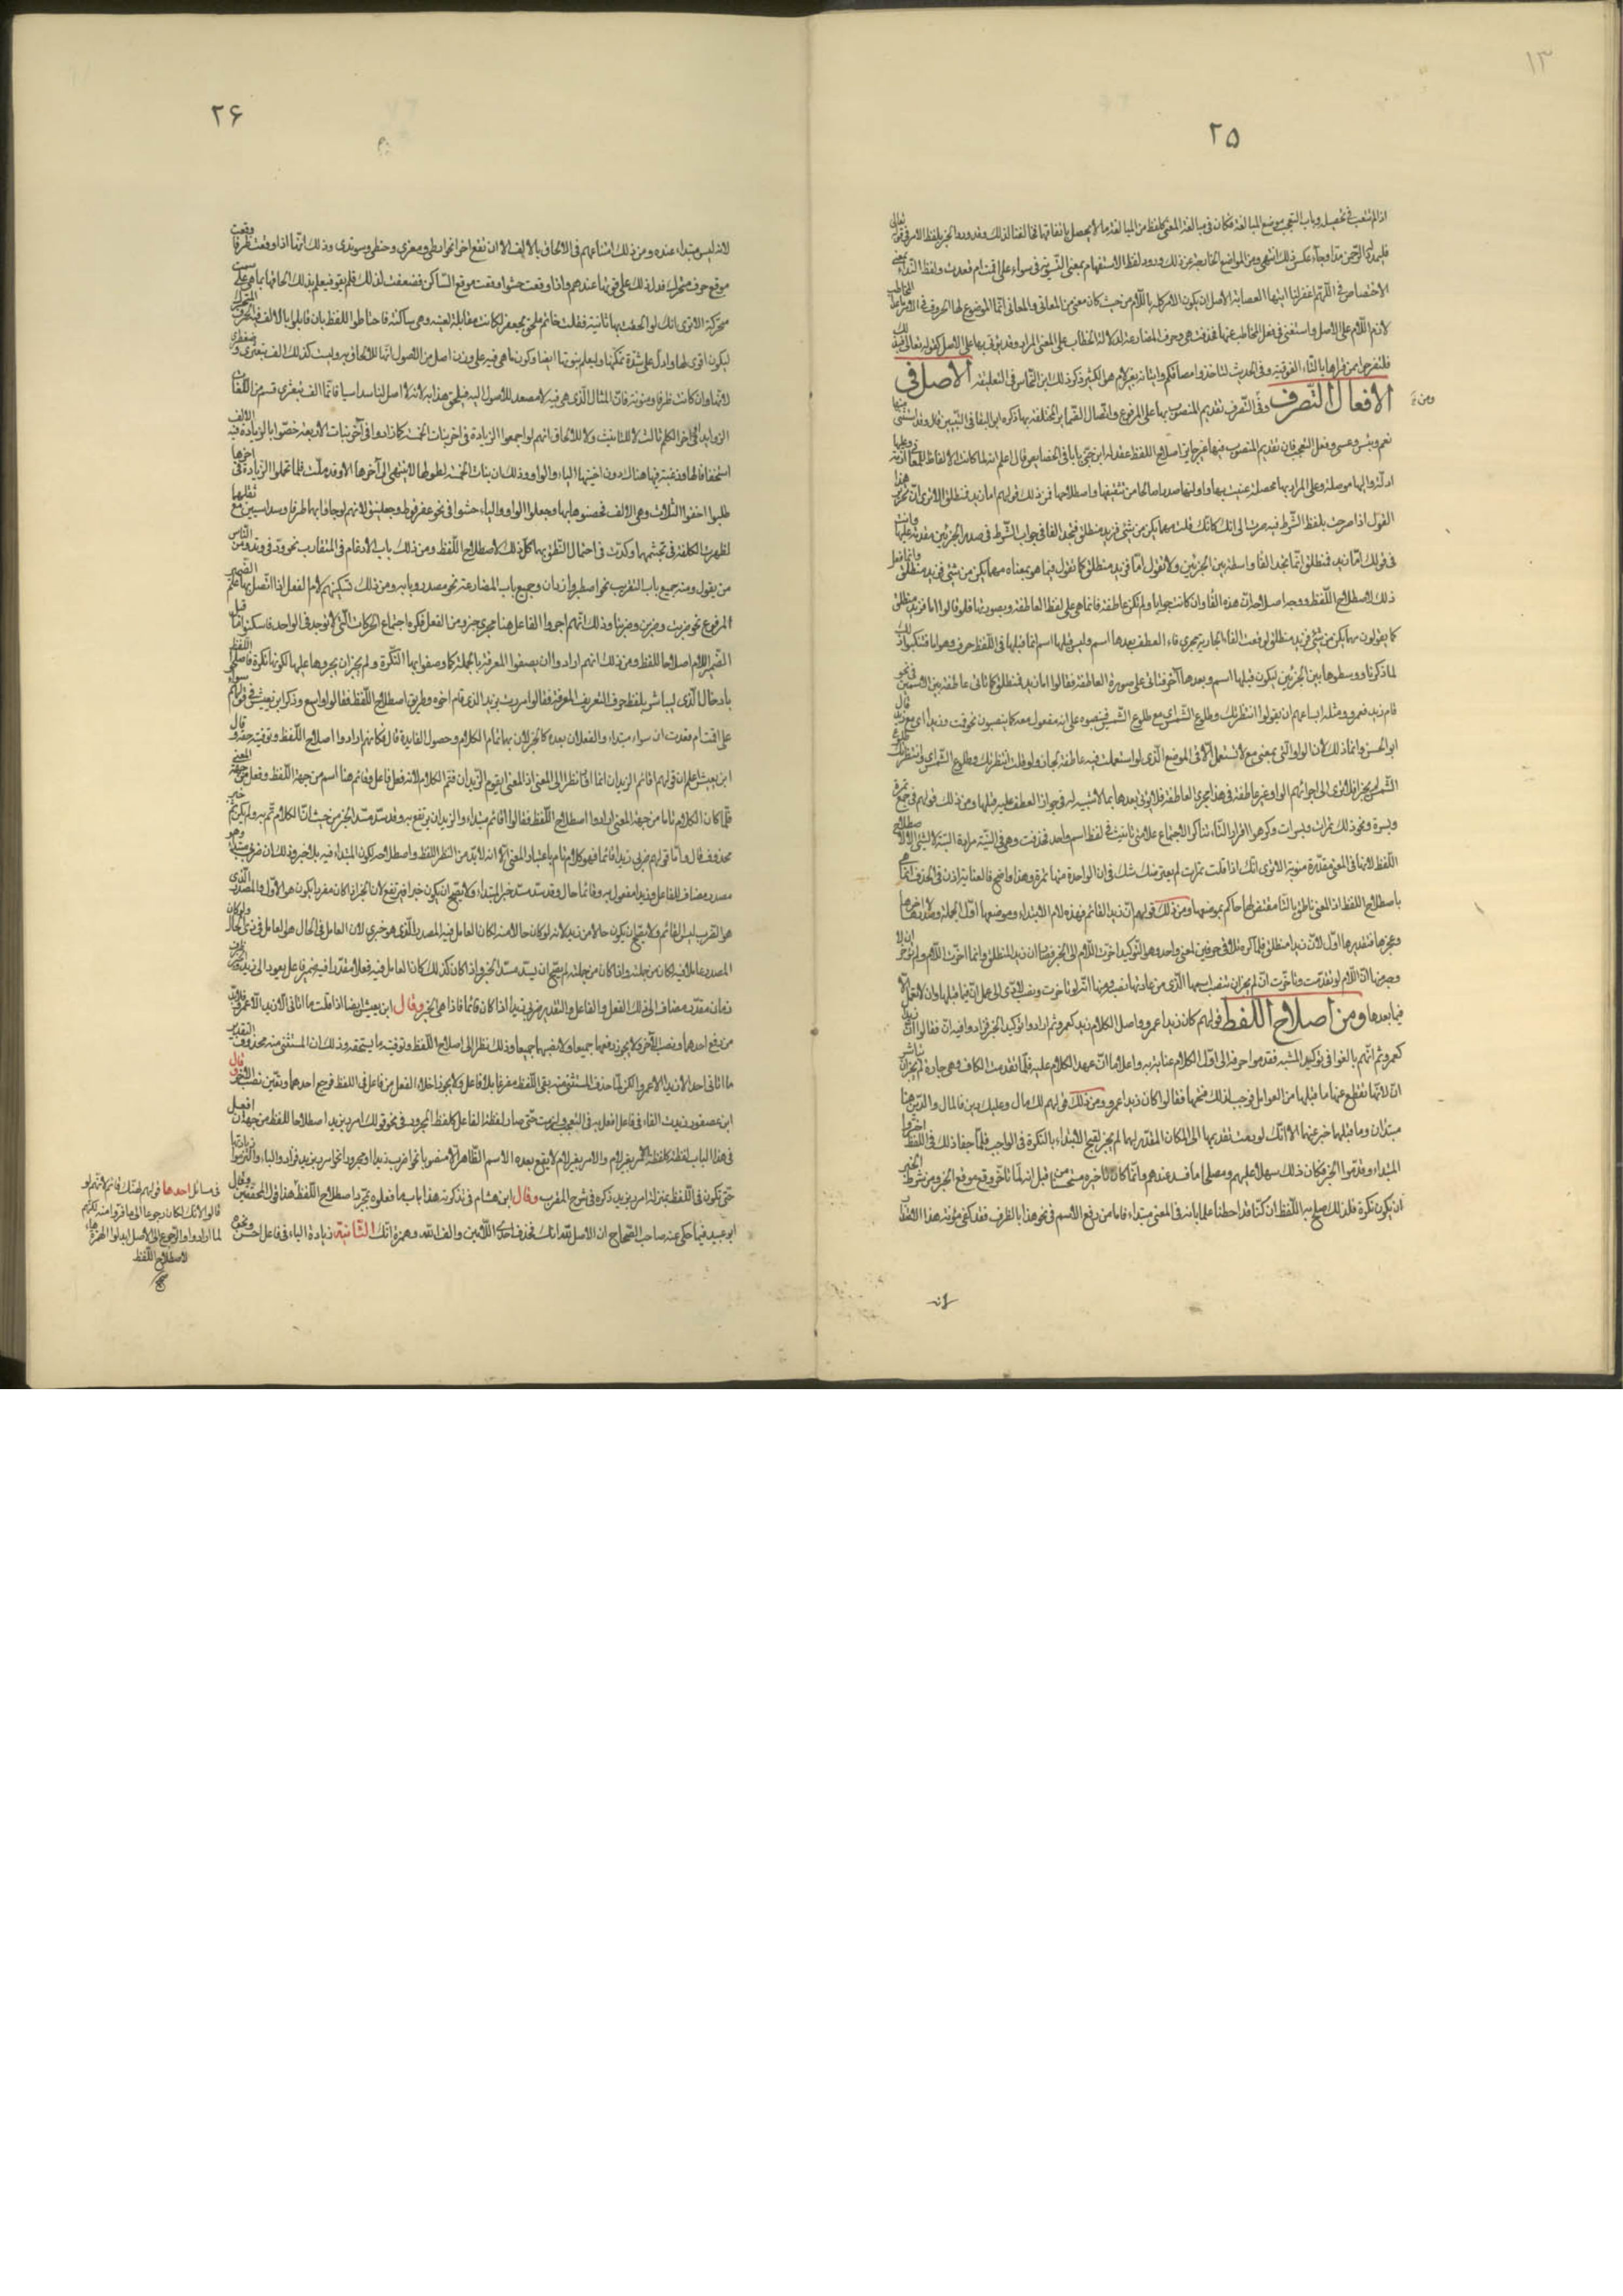 ١٣
٢٥
اذا لم تتعب في تحصيله وباب التعجب موضع المبالغة فكان في مبالغة المعنى بلفظ من المبالغة ما لا يحصل باتفاقهما فخالفنا لذلك وقد ورد الخبر بلفظ الامر في قوله تعالى
فليمدد له الرحمن مدا وجاء عكس ذلك انتهى ومن المواضع الخارجة عن ذلك ورود لفظ الاستفهام بمعنى التسوية في سواء علي اقمت ام قعدت ولفظ النداء بمعنى
الاختصاص في اللهم اغفر لنا ايتها العصابة الاصل ان يكون الامر كله باللام من حيث كان معنى من المعاني والمعاني انما الموضوع لها الحروف فجاء الامر ما عدا المخاطب
لازم اللام على الاصل واستغنى في فعل المخاطب عنها فحذفت هي وحروف المضارعة لدلالة الخطاب على المعنى المراد وقد يؤتى بها على الاصل كقوله تعالى فبذلك
فلتفرحوا فيمن قراها بالتاء الفوقية وفي الحديث لتاخذوا مصافكم واتيانه بغير لام هو الكثير ذكر ذلك ابن النحاس في التعليقة الاصل في
الافعال التصرف وفي التصرف تقديم المنصوب بها على المرفوع واتصال الضمائر المختلفة بها ذكره ابو البقا في التبيين قال وقد استثني منها
نعم وبئس وعسى وفعل التعجب فان تقديم المنصوب فيها غير جائز اصلاح اللفظ عقد له ابن جني بابا في الخصائص قال اعلم انه لما كانت الالفاظ للمعاني ازمة وعليها
ادلة واليها موصلة وعلى المراد بها محصلة عنيت بها واولتها صدرا صالحا من تثقيفها واصطلاحها فمن ذلك قولهم اما زيد فمنطلق الا ترى ان تحرير هذا
القول اذا صرحت بلفظ الشرط فيه صرت الى انك كانك قلت مهما يكن من شئ فزيد منطلق فتجد الفا في جواب الشرط في صدر الجزئين مقدمة عليها وانت
في قولك اما زيد فمنطلق انما تجد الفا واسطة بين الجزئين ولا تقول اما فزيد منطلق كما تقول فيما هو بمعناه مهما يكن من شئ فزيد منطلق وانما فعل
ذلك لاصطلاح اللفظ ووجه اصلاحه ان هذه الفا وان كانت جوابا ولم تكن عاطفة فانما هي على لفظ العاطفة وبصورتها فلو قالوا اما فزيد منطلق
كما يقولون مهما يكن من شئ فزيد منطلق لوقعت الفا الجارية مجرى فاء العطف بعدها اسم وليس قبلها اسم انما قبلها في اللفظ حرف وهو اما فتنكبوا ذلك
لما ذكرنا ووسطوها بين الجزئين ليكون قبلها اسم وبعدها آخر فتاتي على صورة العاطفة فقالوا اما زيد فمنطلق كما تاتي عاطفة بين الاسمين في نحو
قام زيد فعمرو ومثله امتناعهم ان يقولوا انتظرتك وطلوع الشمس اي مع طلوع الشمس فينصبوه على انه مفعول معه كما ينصبون نحو قمت وزيدا اي مع زيد قال
ابو الحسن وانما ذلك لان الواو التي بمعنى مع لا تستعمل الا في الموضع الذي لو استعملت فيه عاطفة لجاز ولو قلت انتظرتك وطلوع الشمس اي وانتظرك طلوع
الشمس لم يجز افلا ترى الى اجرائهم الواو غير عاطفة في هذا مجرى العاطفة فلا يؤتى بعدها بما لا شبيه له في جواز العطف عليه قبلها ومن ذلك قولهم في جمع تمرة
وبسرة ونحو ذلك تمرات وبسرات وكرهوا اقرار التاء تناكر الاجتماع علامتي تانيث في لفظ اسم واحد فحذفت وهي في النية مرادة البتة لا لشئ الا لاصطلاح
اللفظ لانها في المعنى مقدرة منوية الا ترى انك اذا قلت تمرات لم يعترضك شك في ان الواحدة منها تمرة وهذا واضح فالعناية اذن في الحذف انما هي
باصطلاح اللفظ اذ المعنى ناطق بالتا مقتض لها حاكم بموضعها ومن ذلك قولهم ان زيدا لقائم فهذه لام الابتداء وموضعها اول الجملة وصدرها لا اخرها
وعجزها فتقديرها اول لان زيدا منطلق فلما كره تلاقي حرفين لمعنى واحد وهو التوكيد اخرت اللام الى الخبر فصار ان زيدا لمنطلق وانما اخرت اللام ولم تؤخر ان لا
وجه منها ان اللام لو تقدمت وتاخرت ان لم يجز ان تنصب اسمها الذي من عادتها نصبه
فيما بعدها ومن اصلاح اللفظ قولهم كان زيدا عمرو واصل الكلام زيد كعمرو ثم ارادوا توكيد الخبر فزادوا فيه ان فقالوا ان زيدا
كعمرو ثم انهم بالغوا في توكيد التشبيه فقدموا حرفه الى اول الكلام عناية به واعلاما ان عهد الكلام عليه فلما تقدمت الكاف وهي جارة لم يجز ان تباشر
ان لانها تقطع عنها ما قبلها من العوامل فوجب لذلك فتحها فقالوا كان زيدا عمرو ومن ذلك قولهم لك مال وعليك دين فالمال والدين هنا
مبتدان وما قبلهما خبر عنهما الا انك لو رمت تقديمهما الى المكان المقدر لهما لم يجز لقبح الابتداء بالنكرة في الواجب فلما جفا ذلك في اللفظ اخروا
المبتداء وقدموا الخبر فكان ذلك سهلا عليهم ومصلحا لما فسد عندهم وانما كان تاخيره مستحسنا من قبل انه لما تاخر وقع موقع الخبر ومن شرط الخبر
ان يكون نكرة فلذلك صلح به اللفظ ان كنا قد احطنا علما بانه في المعنى مبتداء فاما من رفع الاسم في نحو هذا بالظرف فقد كفي مؤنة هذا الاعتذار
ومن
لانه
٢۶
لانه ليس مبتداء عنده ومن ذلك امتناعهم في الالحاق بالالف الا ان تقع اخرا نحو ارطى ومعزى وحبنطى وسرندى وذلك انها اذا وقعت طرفا وقعت
موقع حرف متحرك فدل ذلك على قوتها عندهم واذا وقعت حشوا وقعت موقع الساكن فضعفت لذلك فلم تقو فيعلم بذلك الحاقها بما هي على سمت
متحركة الا ترى انك لو الحقت بها ثانية فقلت خاتم ملحق بجعفر لكانت مقابلة لعينه وهي ساكنة فاحتاطوا للفظ بان قابلوا بالالف فيه الحرف المتحرك
ليكون اقوى لها وادل على شدة تمكنها وليعلم بتنوينها ايضا وكون ما هي فيه على وزن اصل من الاصول انها للالحاق به وليست كذلك الف قبعثرى وضبغطرى
لانها وان كانت طرفا ومنونة فان المثال الذي هي فيه لا مصعد للاصول اليه فيلحق هذا به لانه لا اصل لنا سداسيا فانما الف قبعثرى قسم من الالفات
الزوايد في اخر الكلم ثالث لا للتانيث ولا للالحاق
استخفافا لها ورغبة فيها هناك دون اختيها الياء والواو وذلك ان بنات الخمسة لطولها لا ينتهى الى آخرها الا وقد ملت فلما تحملوا الزيادة في اخرها
طلبوا اخف الثلاث وهي الالف فخصوها بها وجعلوا الواو والياء حشوا في نحو عضرفوط وجعفليق لانهم لو جاؤا بهما طرفا وسداسيين مع ثقلهما
لظهرت الكلفة في تجشمها وكدت في احتمال النطق بها كل ذلك لاصطلاح اللفظ ومن ذلك باب الادغام في المتقارب نحو ود في وتد ومن الناس
من يقول ومنه جميع باب التقريب نحو اصطبر وازدان وجميع باب المضارعة نحو مصدر وبابه ومن ذلك تسكينهم لام الفعل اذا اتصل بها علم الضمير
المرفوع نحو ضربت وضربن وضربنا وذلك انهم اجروا الفاعل هنا مجرى جزء من الفعل فكره اجتماع الحركات التي لا توجد في الواحد فاسكنوا ما قبل
الضمير اللام اصلاحا للفظ ومن ذلك انهم ارادوا ان يصفوا المعرفة بالجملة كما وصفوا بها النكرة ولم يجز ان يجروها عليها لكونها نكرة فاصلحوا اللفظ
بادخال الذي ليباشر بلفظ حرف التعريف المعرفة فقالوا مررت بزيد الذي قام اخوه وطريق اصطلاح اللفظ
على اقمت ام قعدت ان سواء مبتداء والفعلان بعده كالخبر لان بهما تمام الكلام وحصول الفايدة قال فكانهم ارادوا اصلاح اللفظ وتوفيته حقه وقال
ابن يعيش اعلم ان قولهم اقائم الزيدان انما افاد نظرا الى المعنى اذ المعنى ايقوم الزيدان فتم الكلام لانه فعل وفاعل وقائم هنا اسم من جهة اللفظ وفعل من جهة المعنى
فلما كان الكلام تاما من جهة المعنى ارادوا اصطلاح اللفظ فقالوا اقائم مبتداء والزيدان يرتفع به وقد سد مسد الخبر من حيث ان الكلام تم به ولم يكن ثم خبر
محذوف قال واما قولهم ضربي زيدا قائما فهو كلام تام باعتبار المعنى الا انه لا بد من النظر للفظ واصطلاحه لكون المبتداء فيه بلا خبر وذلك ان ضربي مبتداء وهو
مصدر مضاف للفاعل وزيدا مفعول به وقائما حال وقد سد مسد خبر المبتداء ولا يصح ان يكون خبرا فيرتفع لان الخبر اذا كان مفردا يكون هو الاول والمصدر الذي
هو الضرب ليس القائم ولا يصح ان يكون حالا من زيد لانه لو كان حالا منه لكان العامل فيه المصدر الذي هو ضربي لان العامل في الحال هو العامل في ذي الحال ولو كان
المصدر عاملا فيه لكان من جملته واذا كان من جملته لم يصح ان يسد مسد الخبر واذا كان كذلك كان العامل فيه فعلا مقدرا فيه ضمير فاعل يعود الى زيد
زمان مقدر مضاف الى ذلك الفعل والفاعل والتقدير ضربي زيدا اذا كان قائما فاذا هي الخبر وقال ابن يعيش ايضا اذا قلت ما اتاني الا زيد الا عمرو فلا بد
من رفع احدهما ونصب الآخر ولا يجوز رفعهما جميعا ولا نصبهما جميعا وذلك نظرا الى اصلاح اللفظ وتوفية ما يستحقه وذلك ان المستثنى منه محذوف التقدير
ما اتاني احد الا زيدا الا عمرا لكن لما حذف المستثنى منه بقي اللفظ مفرغا بلا فاعل ولا يجوز اخلاء الفعل من فاعل في اللفظ فرفع احدهما وتعين نصب الآخر وقال
ابن عصفور زيدت الباء في فاعل افعل به في التعجب ولزمت حتى صار لفظ الفاعل كلفظ المجرور في نحو قولك امرر بزيد اصطلاحا للفظ من جهة ان افعل
في هذا الباب لفظه كلفظ الامر بغير لام والامر بغير لام لا يقع بعده الاسم الظاهر الا منصوبا نحو اضرب زيدا او مجرورا نحو امرر بزيد فزادوا الباء والتزموا زيادتها
حتى تكون في اللفظ بمنزلة امرر بزيد ذكره في شرح المقرب وقال ابن هشام في تذكرته هذا باب ما فعلوه لمجرد اصطلاح اللفظ
ابو عبيد فيما حكى عنه صاحب الصحاح ان الاصل لله انك فحذف احدى اللامين والف الله وهمزة انك الثانية زيادة الباء في فاعل احسن ونحوه
في مسائل احدها قولهم لهنك قائم لانهم لو
قالوا لانك لكان رجوعا الى ما فروا منه لكنهم
لما ارادوا الرجوع الى الاصل ابدلوا الهمزة هاء
لاصطلاح اللفظ